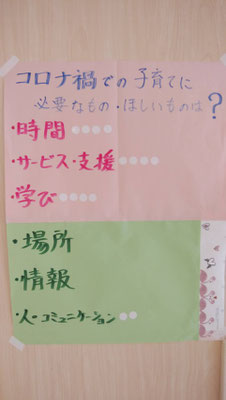 コロナ禍での子育てに
必要なもの・ほしいものは?
・時間
・サービス・支援
・学び
・場所
・情報
・人・コミュニケーション